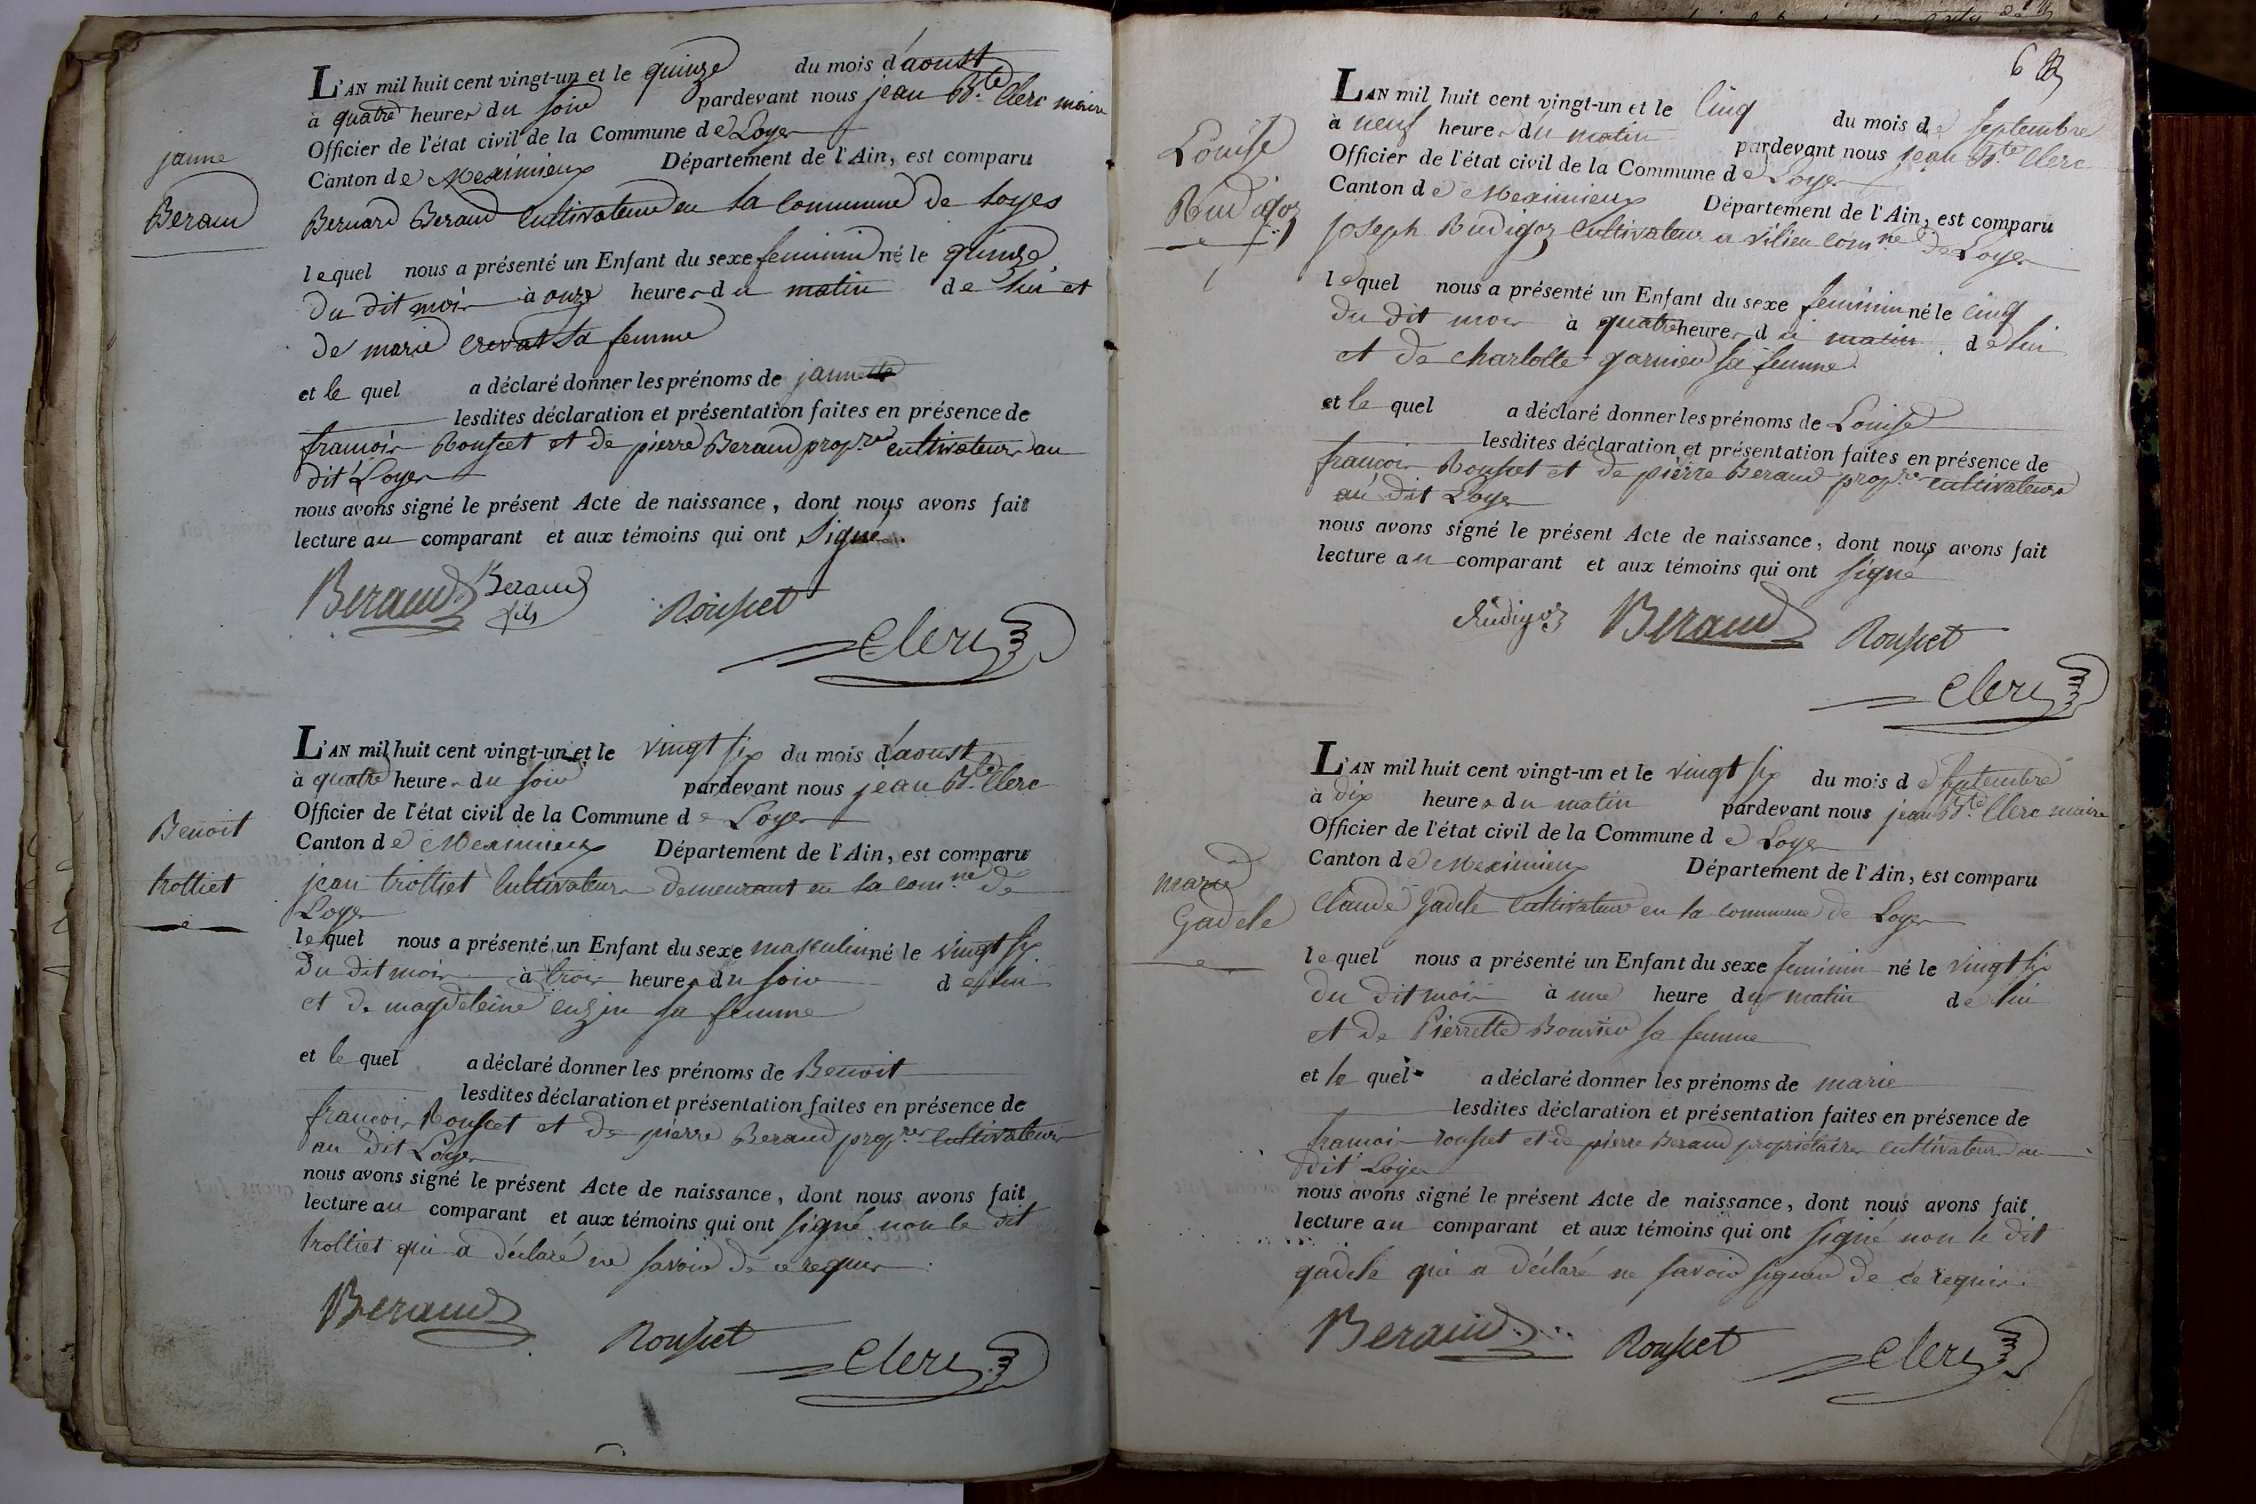 janne
Beraud
L'AN mil huit cent vingt-un et le quinze du mois d'aoust
à quatre heures du soir pardevant nous jean Bte. Clerc maire
Officier de l'état civil de la Commune de Loyes
Canton de Meximieux Département de l'Ain, est comparu
Bernard Beraud Cultivateur en la Commune de Loyes
lequel nous a présenté un Enfant du sexe feminin né le quinze
du dit mois à onze heures du matin de lui et
de marie crevat sa femme
et le quel a déclaré donner les prénoms de janne
lesdites déclaration et présentation faites en présence de
francois Rousset et de pierre Beraud propre. cultivateurs au
dit Loyes
nous avons signé le présent Acte de naissance, dont nous avons fait
lecture au comparant et aux témoins qui ont signé.
Beraud Beraud
fils
Rousset
Clerc
Benoit
trolliet
L'AN mil huit cent vingt-un et le vingt six du mois d'aoust
à quatre heures du soir pardevant nous jean Bte. Clerc
Officier de l'état civil de la Commune de Loyes
Canton de Meximieux Département de l'Ain, est comparu
jean trolliet Cultivateur demeurant en la comne. de
Loyes
lequel nous a présenté un Enfant du sexe masculin né le vingt six
du dit mois à trois heures du soir de lui
et de magdeleine sa femme
et le quel a déclaré donner les prénoms de Benoit
lesdites déclaration et présentation faites en présence de
francois Rousset et de pierre Beraud propres. Cultivateurs
au dit Loyes
nous avons signé le présent Acte de naissance, dont nous avons fait
lecture au comparant et aux témoins qui ont signé non le dit
trolliet qui a déclaré ne savoir de ce requis
Beraud
Rousset
Clerc
6
Louise
Rudigoz
L'AN mil huit cent vingt-un et le cinq du mois de septembre
à neuf heures du matin pardevant nous jean Bte. Clerc
Officier de l'état civil de la Commune de Loyes
Canton de Meximieux Département de l'Ain, est comparu
joseph Rudigoz Cultivateur a vilieu comne. de Loyes
lequel nous a présenté un Enfant du sexe feminin né le cinq
du dit mois à quatre heures du matin de lui
et de charlotte garnier sa femme
et le quel a déclaré donner les prénoms de Louise
lesdites déclaration et présentation faites en présence de
francois Rousset et de pierre Beraud propre. cultivateurs
au dit Loyes
nous avons signé le présent Acte de naissance, dont nous avons fait
lecture au comparant et aux témoins qui ont signé
Rudigoz Beraud Rousset
Clerc
marie
Gadele
L'AN mil huit cent vingt-un et le vingt six du mois de septembre
à dix heures du matin pardevant nous jean Bte. Clerc maire
Officier de l'état civil de la Commune de Loyes
Canton de Meximieux Département de l'Ain, est comparu
Claude gadele Cultivateur en la commune de Loyes
lequel nous a présenté un Enfant du sexe feminin né le vingt six
du dit mois à une heure du matin de lui
et de Pierrette Bouvier sa femme
et le quel a déclaré donner les prénoms de marie
lesdites déclaration et présentation faites en présence de
francois rousset et de pierre Beraud propriétaires cultivateurs au
dit Loyes
nous avons signé le présent Acte de naissance, dont nous avons fait
lecture au comparant et aux témoins qui ont signé non le dit
gadele qui a déclaré ne savoir signer de ce requis.
Beraud Rousset Clerc